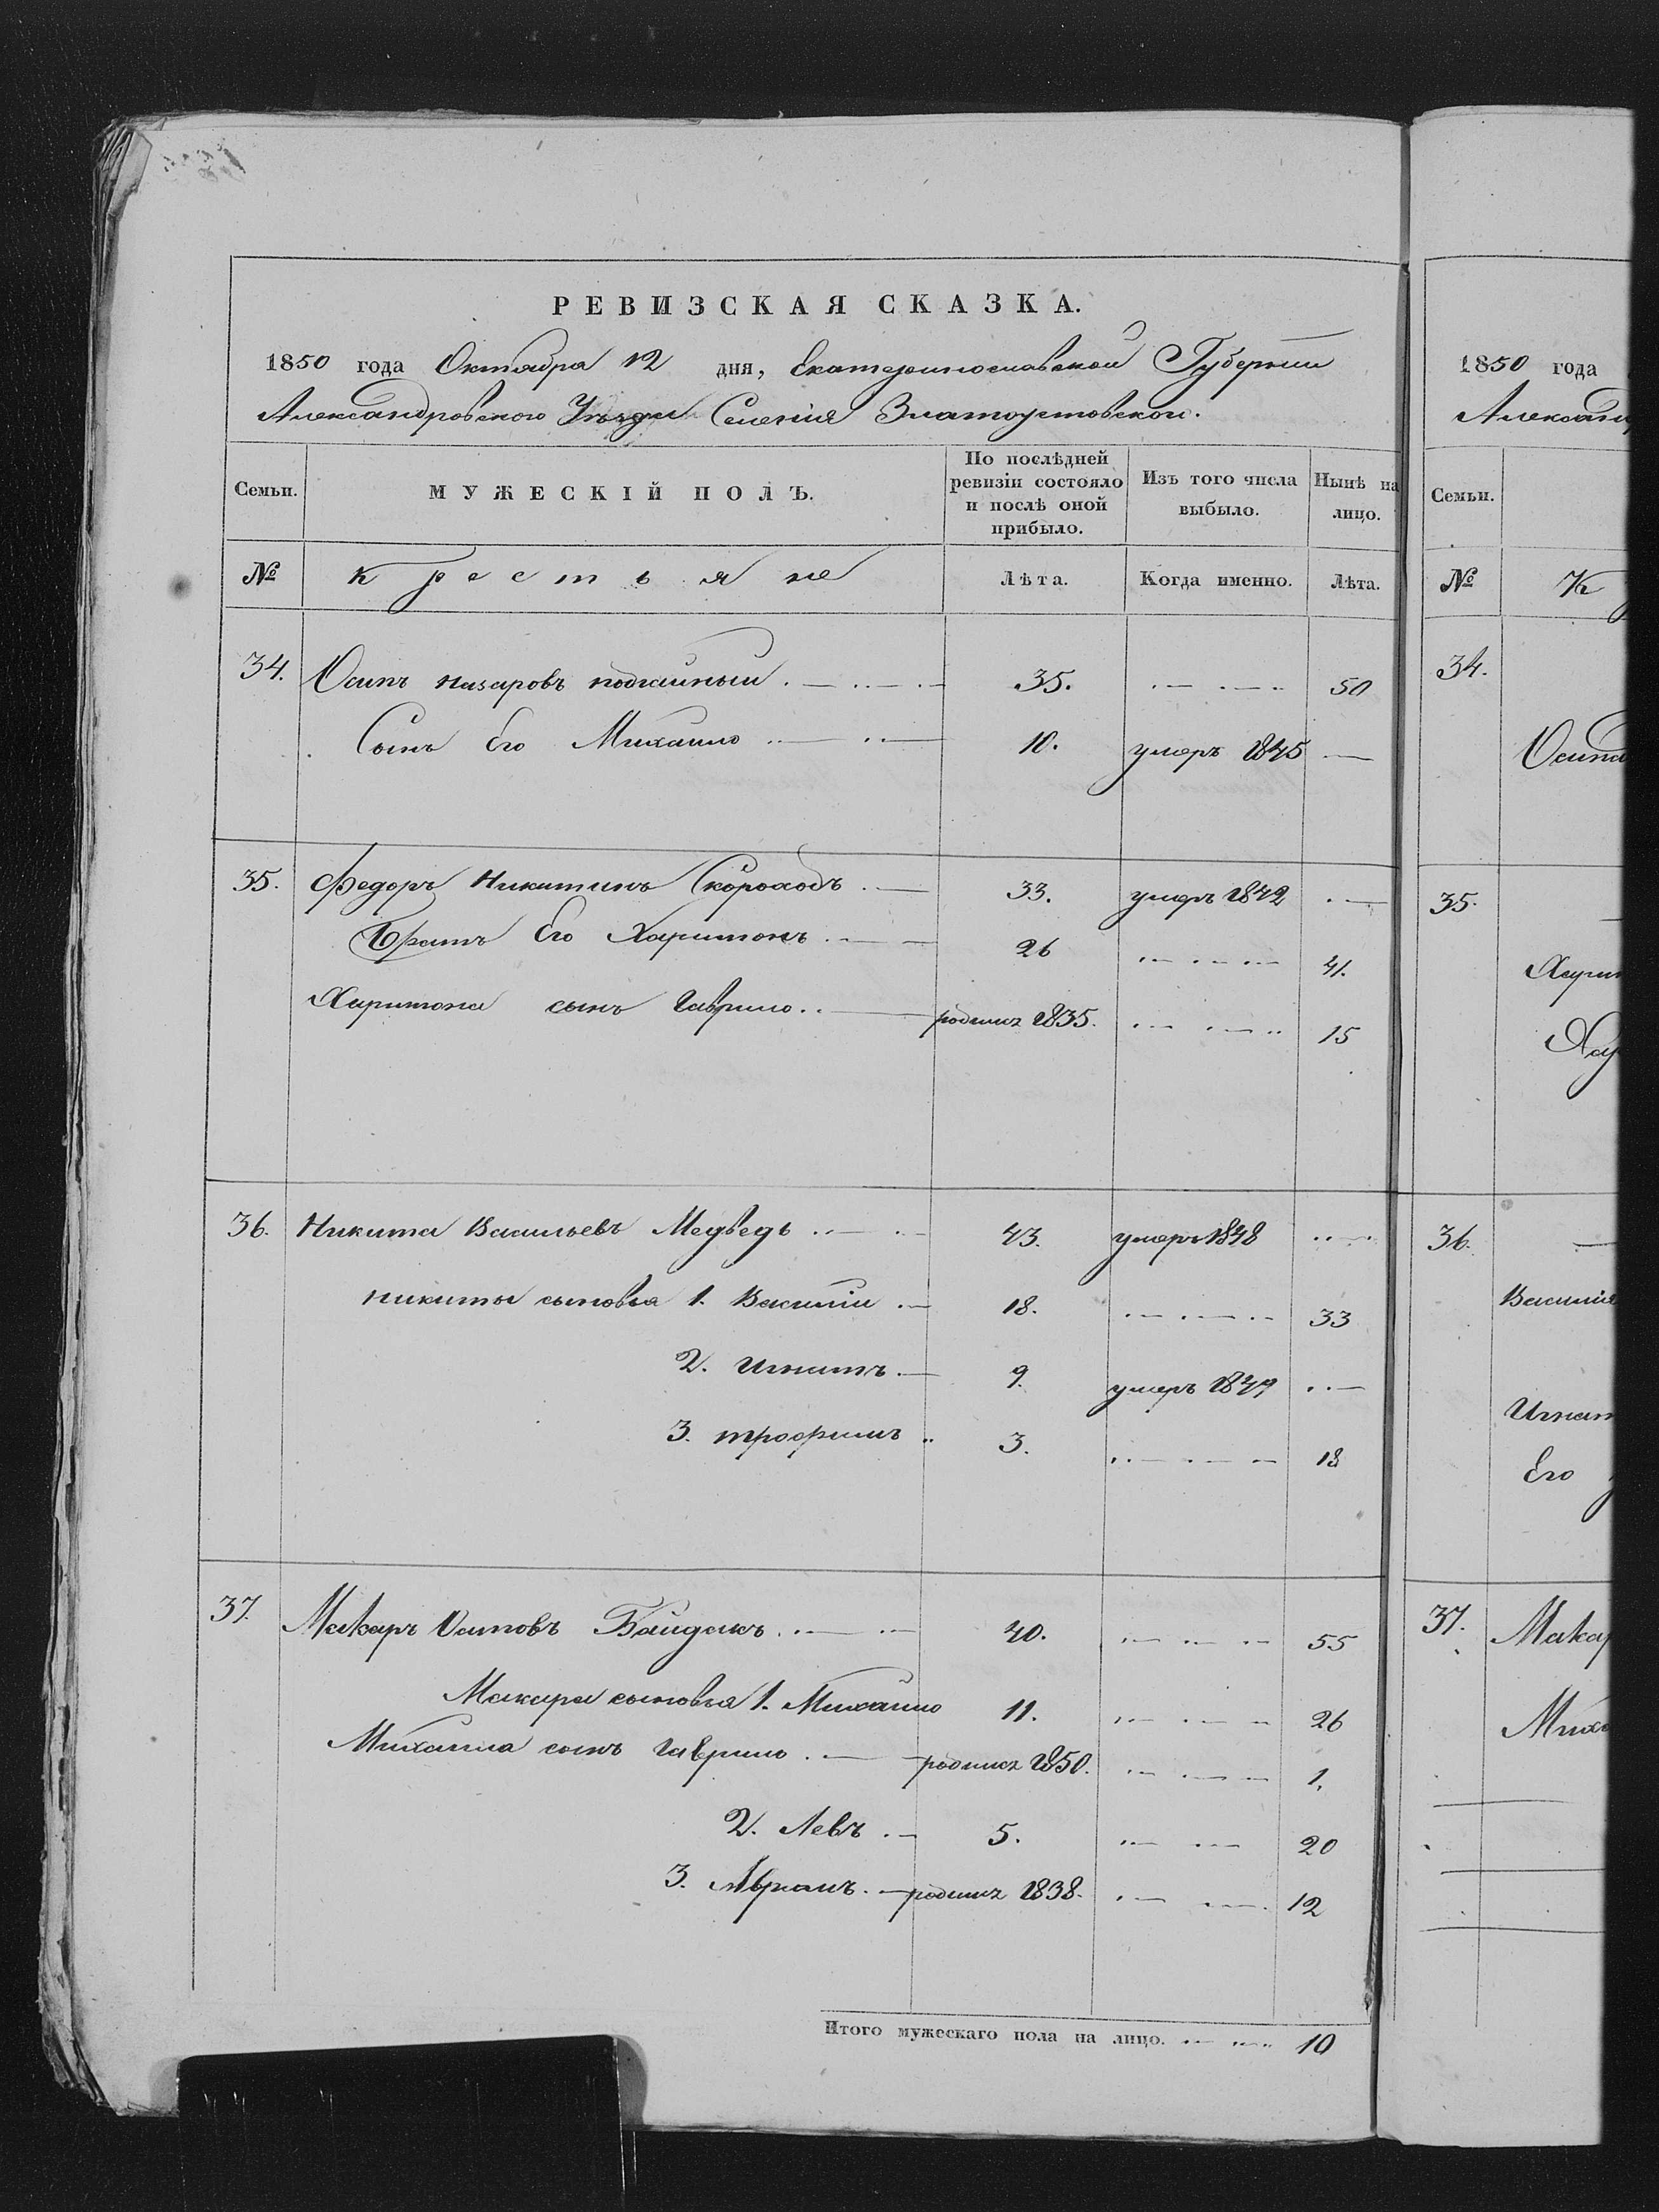 РЕВИЗСКАЯ СКАЗКА.
1850 года Октября 12 дня, Екатеринославской Губернии
Александровского Уезда Селения Златоустовской.
Семьи. МУЖЕСКІЙ ПОЛЪ. По послѣдней ревизіи состояло и послѣ оной прибыло. Изъ того числа выбыло. Нынѣ на лицо.
№ Крестьяне Лѣта. Когда именно. Лѣта.
34. Осипъ Назаровъ подгайный 35. 50
Сынъ Его Михайло 10. умеръ 1845
35. Федоръ Никитинъ Скороходъ 33. умеръ 1842
Братъ Его Харитонъ 26 41.
Харитона сынъ Гаврило родился 1835. 15
36. Никита Васильевъ Медведь 43. умеръ 1848
никиты сыновья 1. Василій 18. 33
2. Игнатъ 9. умеръ 1849
3. трофимъ 3. 18
37. Макаръ Осиповъ Байдакъ 40. 55
Макара сыновья 1. Михайло 11. 26
Михаила сынъ Гаврило родился 1850. 1.
2. Левъ 5. 20
3. Абрамъ родился 1838. 12
Итого мужескаго пола на лицо. 10
1850 года
Александ
Семьи.
№ К
34.
Осипа
35.
Харит
Хар
36.
Василия
Игнат
Его
37. Макар
Миха